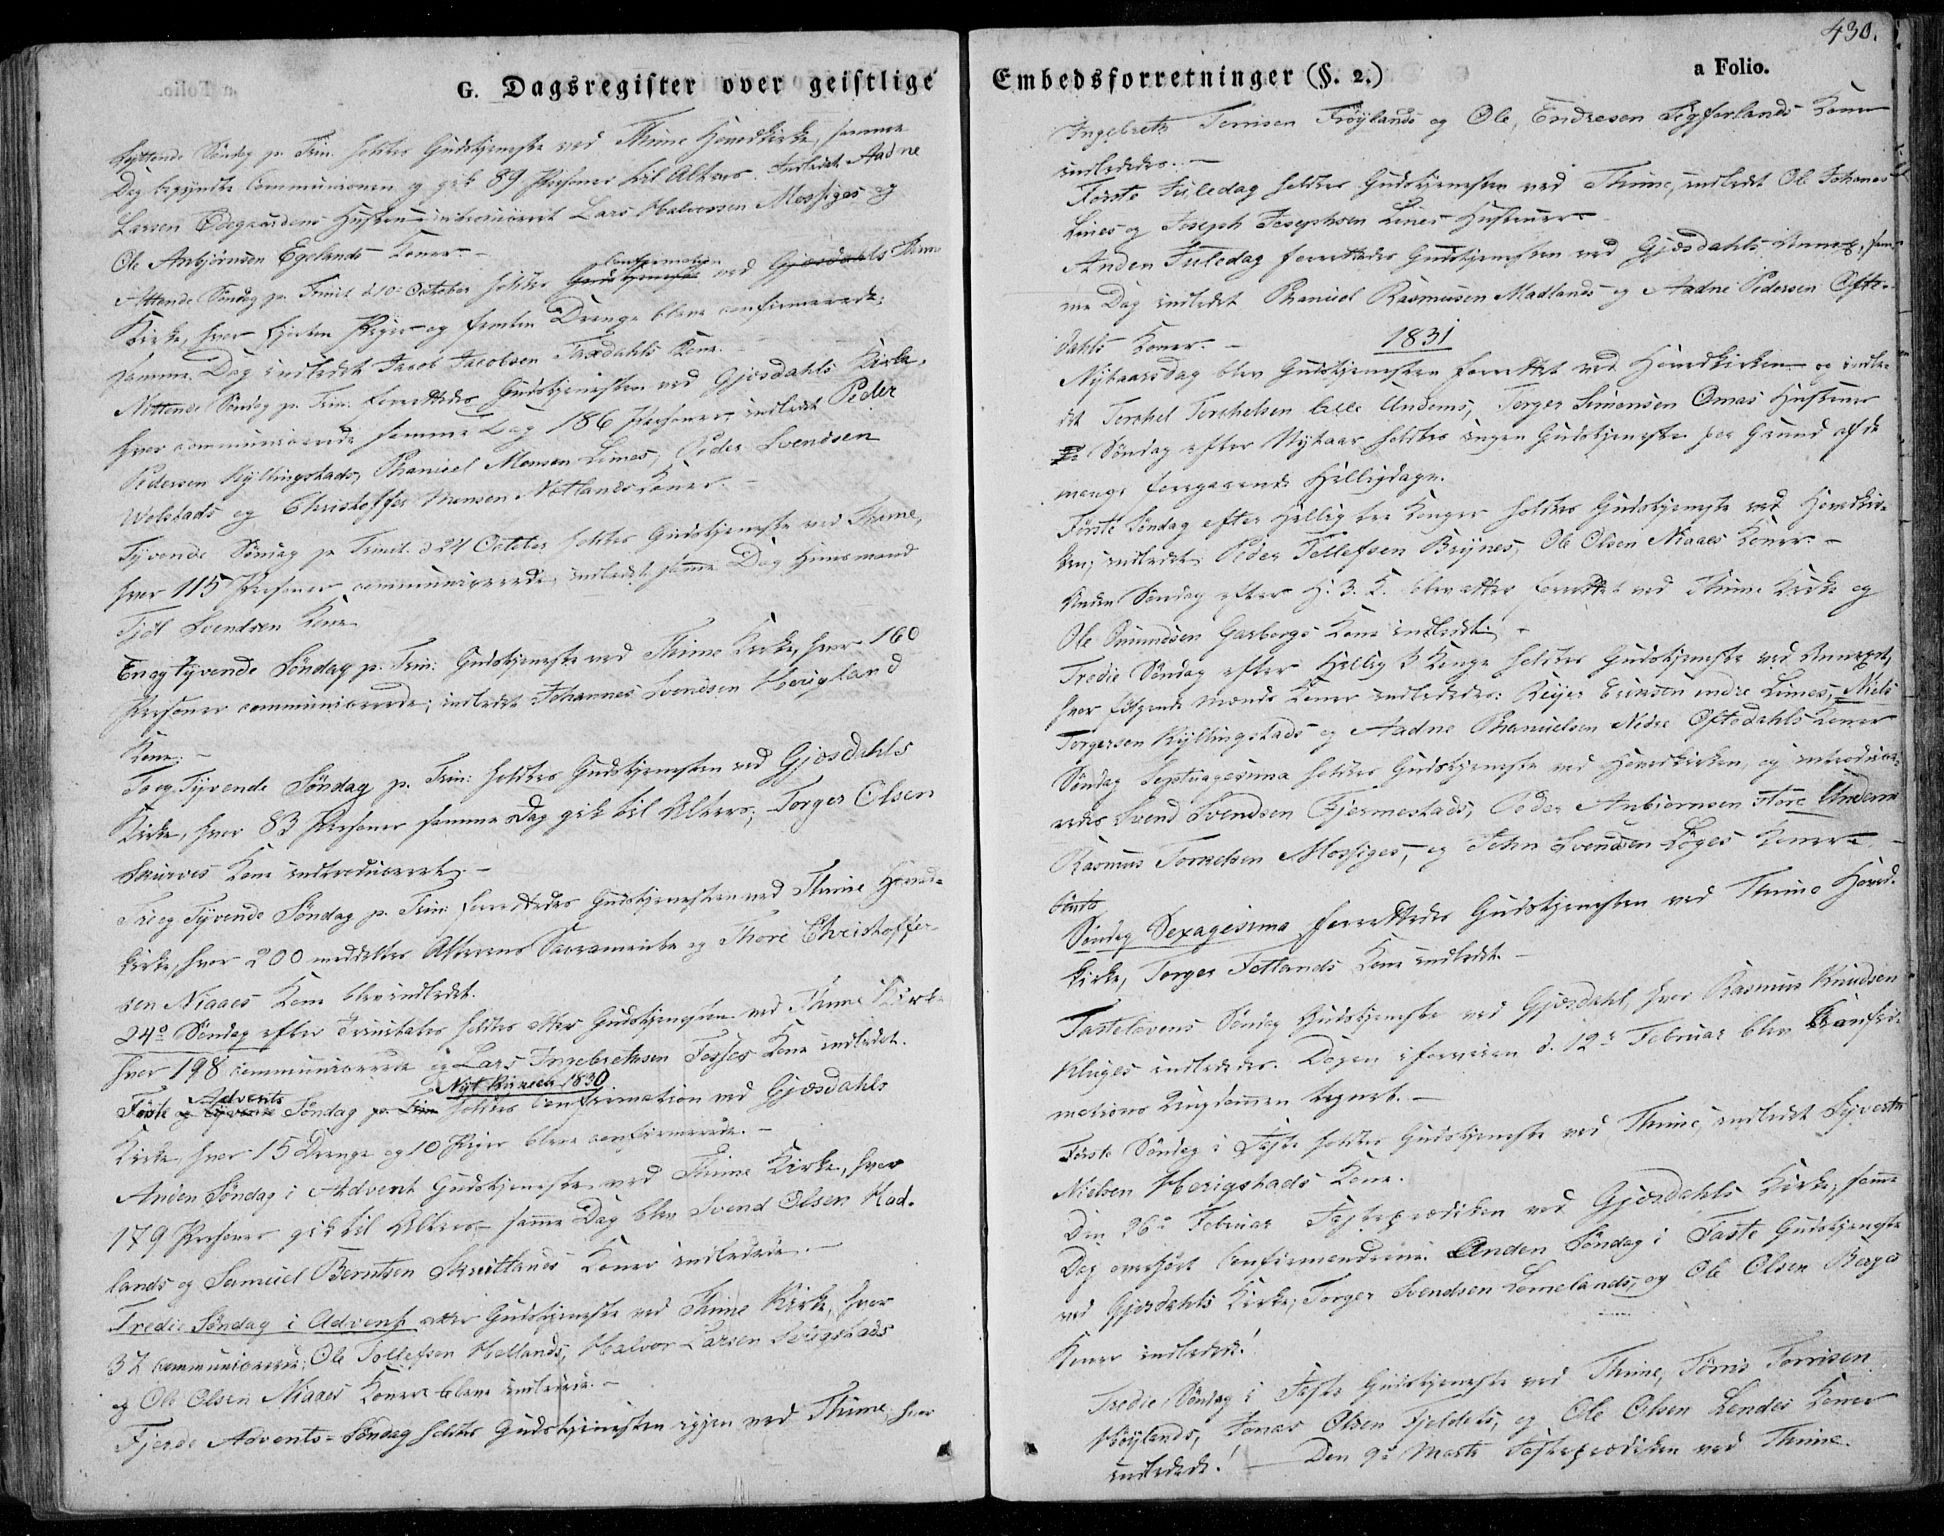 G. Dagsregister over geistlige
Syttende Søndag p. Trin. holdtes Gudstjeneste ved Thime Hovedkirke, samme
Dag begyndte Communionen og gik 89 Personer til Alters. Indledt Aadne
Larsen Ødegaardens Hustru introduceret Lars Halvorsen Mossiges og
Ole Anbjørnsen Egelands Koner. -
confirmation
Attende Søndag p. Trinit. d 10de October holdtes Gudstjeneste ved Gjæsdahls Thime
Kirke, hvor Piger og femten Drenge bleve confirmerede;
samme Dag indledt Jacob Jacobsen Taxdahls Kone. -
Nittende Søndag p. Trin: forrettedes Gudstjenesten ved Gjæsdahls Kirke,
hvor communicerede samme Dag 186 Personer, indledt Peder
Pedersen Kyllingstads, Phanuel Monsen Limes, Peder Svendsen
Wolstads og Christoffer Monsen Nøtlands Koner. -
Tyvende Søndag p. Trinit. d 24 October holdtes Gudstjeneste ved Thime,
hvor 115 Personer communicerede, indledt samme Dag Huusmand
Tjøl Svendsen Kone
En og tyvende Søndag p. Trin: Gudstjeneste ved Thime Kirke, hvor 160
Personer communicerede; indledt Johannes Svendsen Herigland
Kone. -
To og Tyvende Søndag p. Trin: holdtes Gudstjenesten ved Gjæsdahls
Kirke, hvor 83 Personer samme Dag gik til Alters; Torger Olsen
Skurves Kone introduceret. -
Tre og Tyvende Søndag p. Trin: forrettedes Gudstjenesten ved Thime Hoved-
kirke, hvor 200 meddeltes Alterens Sacramente og Thore Christoffer-
sen Niaaes Kone blev indledt.
24de Søndag efter Trinitatis holdtes atter Gudstjenesten ved Thime Kirke
hvor 198 communicerede og Lars Ingebrethsen Fosses Kone indledt.
Nyt Kirkeaar 1830
Advents
Første og tyvende Søndag p. Trin holdtes Confirmation ved Gjæsdahls
Kirke, hvor 15 Drenge og 10 Piger bleve confirmerede. -
Anden Søndag i Advent Gudstjeneste ved Thime Kirke, hvor
179 Personer gik til Alters - samme Dag blev Svend Olsen Mad-
lands og Samuel Berntsen Skrutlands Koner indledede. -
Tredie Søndag i Advent atter Gudstjeneste ved Thime Kirke, hvor
32 communicerede; Ole Tollefsen Hellands, Halvor Larsen
og Ole Olsen Niaaes Koner bleve indledede. -
Fjerde Advents-Søndag holdtes Gudstjenesten igjen ved Thime, hvor
430.
Embedsforretninger (§. 2.)
a Folio.
Ingebreth Torrisen Frøylands og Ole Endresen Sigferlands Koner
indledede. -
Første Juledag holdtes Gudstjenesten ved Thime, indledt Ole Johannes
Limes og Joseph Josephsen Limes Hustruer -
Anden Juledag forrettedes Gudstjenesten ved Gjæsdahls Annex, sam-
me Dag indledt Phanuel Rasmusen Madlands og Aadne Pedersen Ofte-
dahls Koner. -
1831
Nytaarsdag blev Gudstjenesten forrettet ved Hovedkirken og indle-
det Torchel Torchelsen lille Undems, Torger Simonsen Omas Hustruer
Søndag efter Nytaar holdtes ingen Gudstjeneste paa Grund af de
mange foregaaende Helligdage.
Første Søndag efter Hellig tre Konger holdtes Gudstjeneste ved Hovedkir-
ken, indledt Peder Tollefsen Brynes, Ole Olsen Niaaes Koner. -
Anden Søndag efter H. 3. K. blev atter forrettet ved Thime Kirke og
Ole Omundsen Garborgs Kone indledt. -
Tredie Søndag efter Hellig 3 Konge holdtes Gudstjeneste ved Annexet,
hvor følgende Mænds Koner indledede: Reyer Eriksen indre Limes, Niels
Torgersen Kyllingstads og Aadne Phanuelsen Nedre Oftedahls Koner
Søndag Septuagesima holdtes Gudstjeneste ved Hovedkirken, og introduce-
redes Svend Svendsen Fjermestads, Peder Anbiørnsen store Undem
Rasmus Tornelsen Mossiges, og John Svendsen Løges Koner. -
Søndag Sexagesima forrettedes Gudstjenesten ved Thime Hoved-
kirke, Torger Fotlands Kone indledt. -
Fastelavens Søndag Gudstjeneste ved Gjæsdahl, hvor Rasmus Knudsen
Kluges indledede. Dagen iforveien d. 12te Februar blev Confir-
mations Ungdommen tegnet. -
Første Søndag i Faste holdtes Gudstjeneste ved Thime, indledt Syvert
Nielsen Herigstads Kone.
Den 26de Februar Fasteprædiken ved Gjæsdahls Kirke, samme
Dag overhørt Confirmanderne. Anden Søndag i Faste Gudstjeneste
ved Gjæsdahls Kirke, Torger Svendsen Lomelands, og Ole Olsen Berges
Koner indledede!
Tredie Søndag i Faste Gudstjeneste ved Thime, Tørris Torrisen
Høylands, Jonas Olsen Fjeldets, og Ole Olsen Lendes Koner
indledede! - Den 9de Marts Fasteprædiken ved Thime.